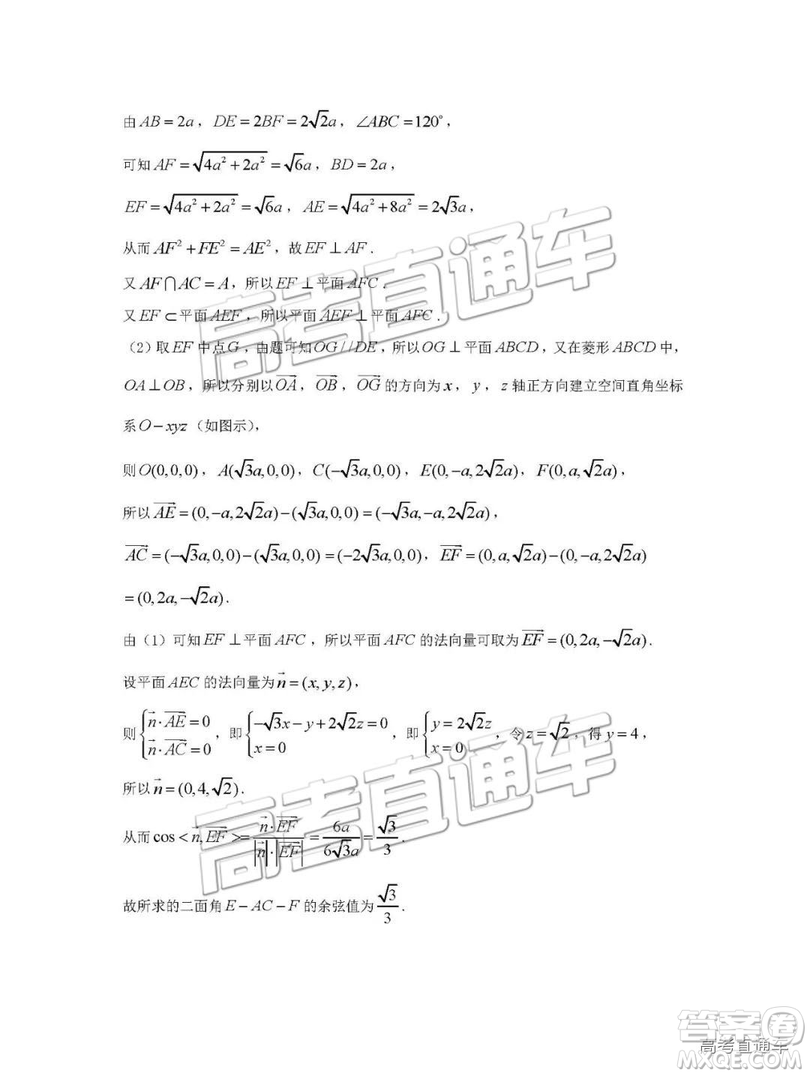 由AB=2a，DE=2BF=2√2a，∠ABC=120°，
可知AF=√(4a²+2a²)=√6a，BD=2a，
EF=√(4a²+2a²)=√6a，AE=√(4a²+8a²)=2√3a，
从而AF²+FE²=AE²，故EF⊥AF．
又AF∩AC=A，所以EF⊥平面AFC．
又EF⊂平面AEF，所以平面AEF⊥平面AFC．
（2）取EF中点G，由题可知OG//DE，所以OG⊥平面ABCD，又在菱形ABCD中，
OA⊥OB，所以分别以→OA，→OB，→OG的方向为x，y，z轴正方向建立空间直角坐标
系O-xyz（如图示），
则O(0,0,0)，A(√3a,0,0)，C(-√3a,0,0)，E(0,-a,2√2a)，F(0,a,√2a)，
所以→AE=(0,-a,2√2a)-(√3a,0,0)=(-√3a,-a,2√2a)，
→AC=(-√3a,0,0)-(√3a,0,0)=(-2√3a,0,0)，→EF=(0,a,√2a)-(0,-a,2√2a)
=(0,2a,-√2a)．
由（1）可知EF⊥平面AFC，所以平面AFC的法向量可取为→EF=(0,2a,-√2a)．
设平面AEC的法向量为→n=(x,y,z)，
则{→n·→AE=0, →n·→AC=0，即{-√3x-y+2√2z=0, x=0，即{y=2√2z, x=0，令z=√2，得y=4，
所以→n=(0,4,√2)．
从而cos<→n,→EF>=→n·→EF/|→n|·|→EF|=6a/6√3a=√3/3．
故所求的二面角E-AC-F的余弦值为√3/3．
高考直通车
高考直通车
答案圈
高考直通车
MXQE.COM